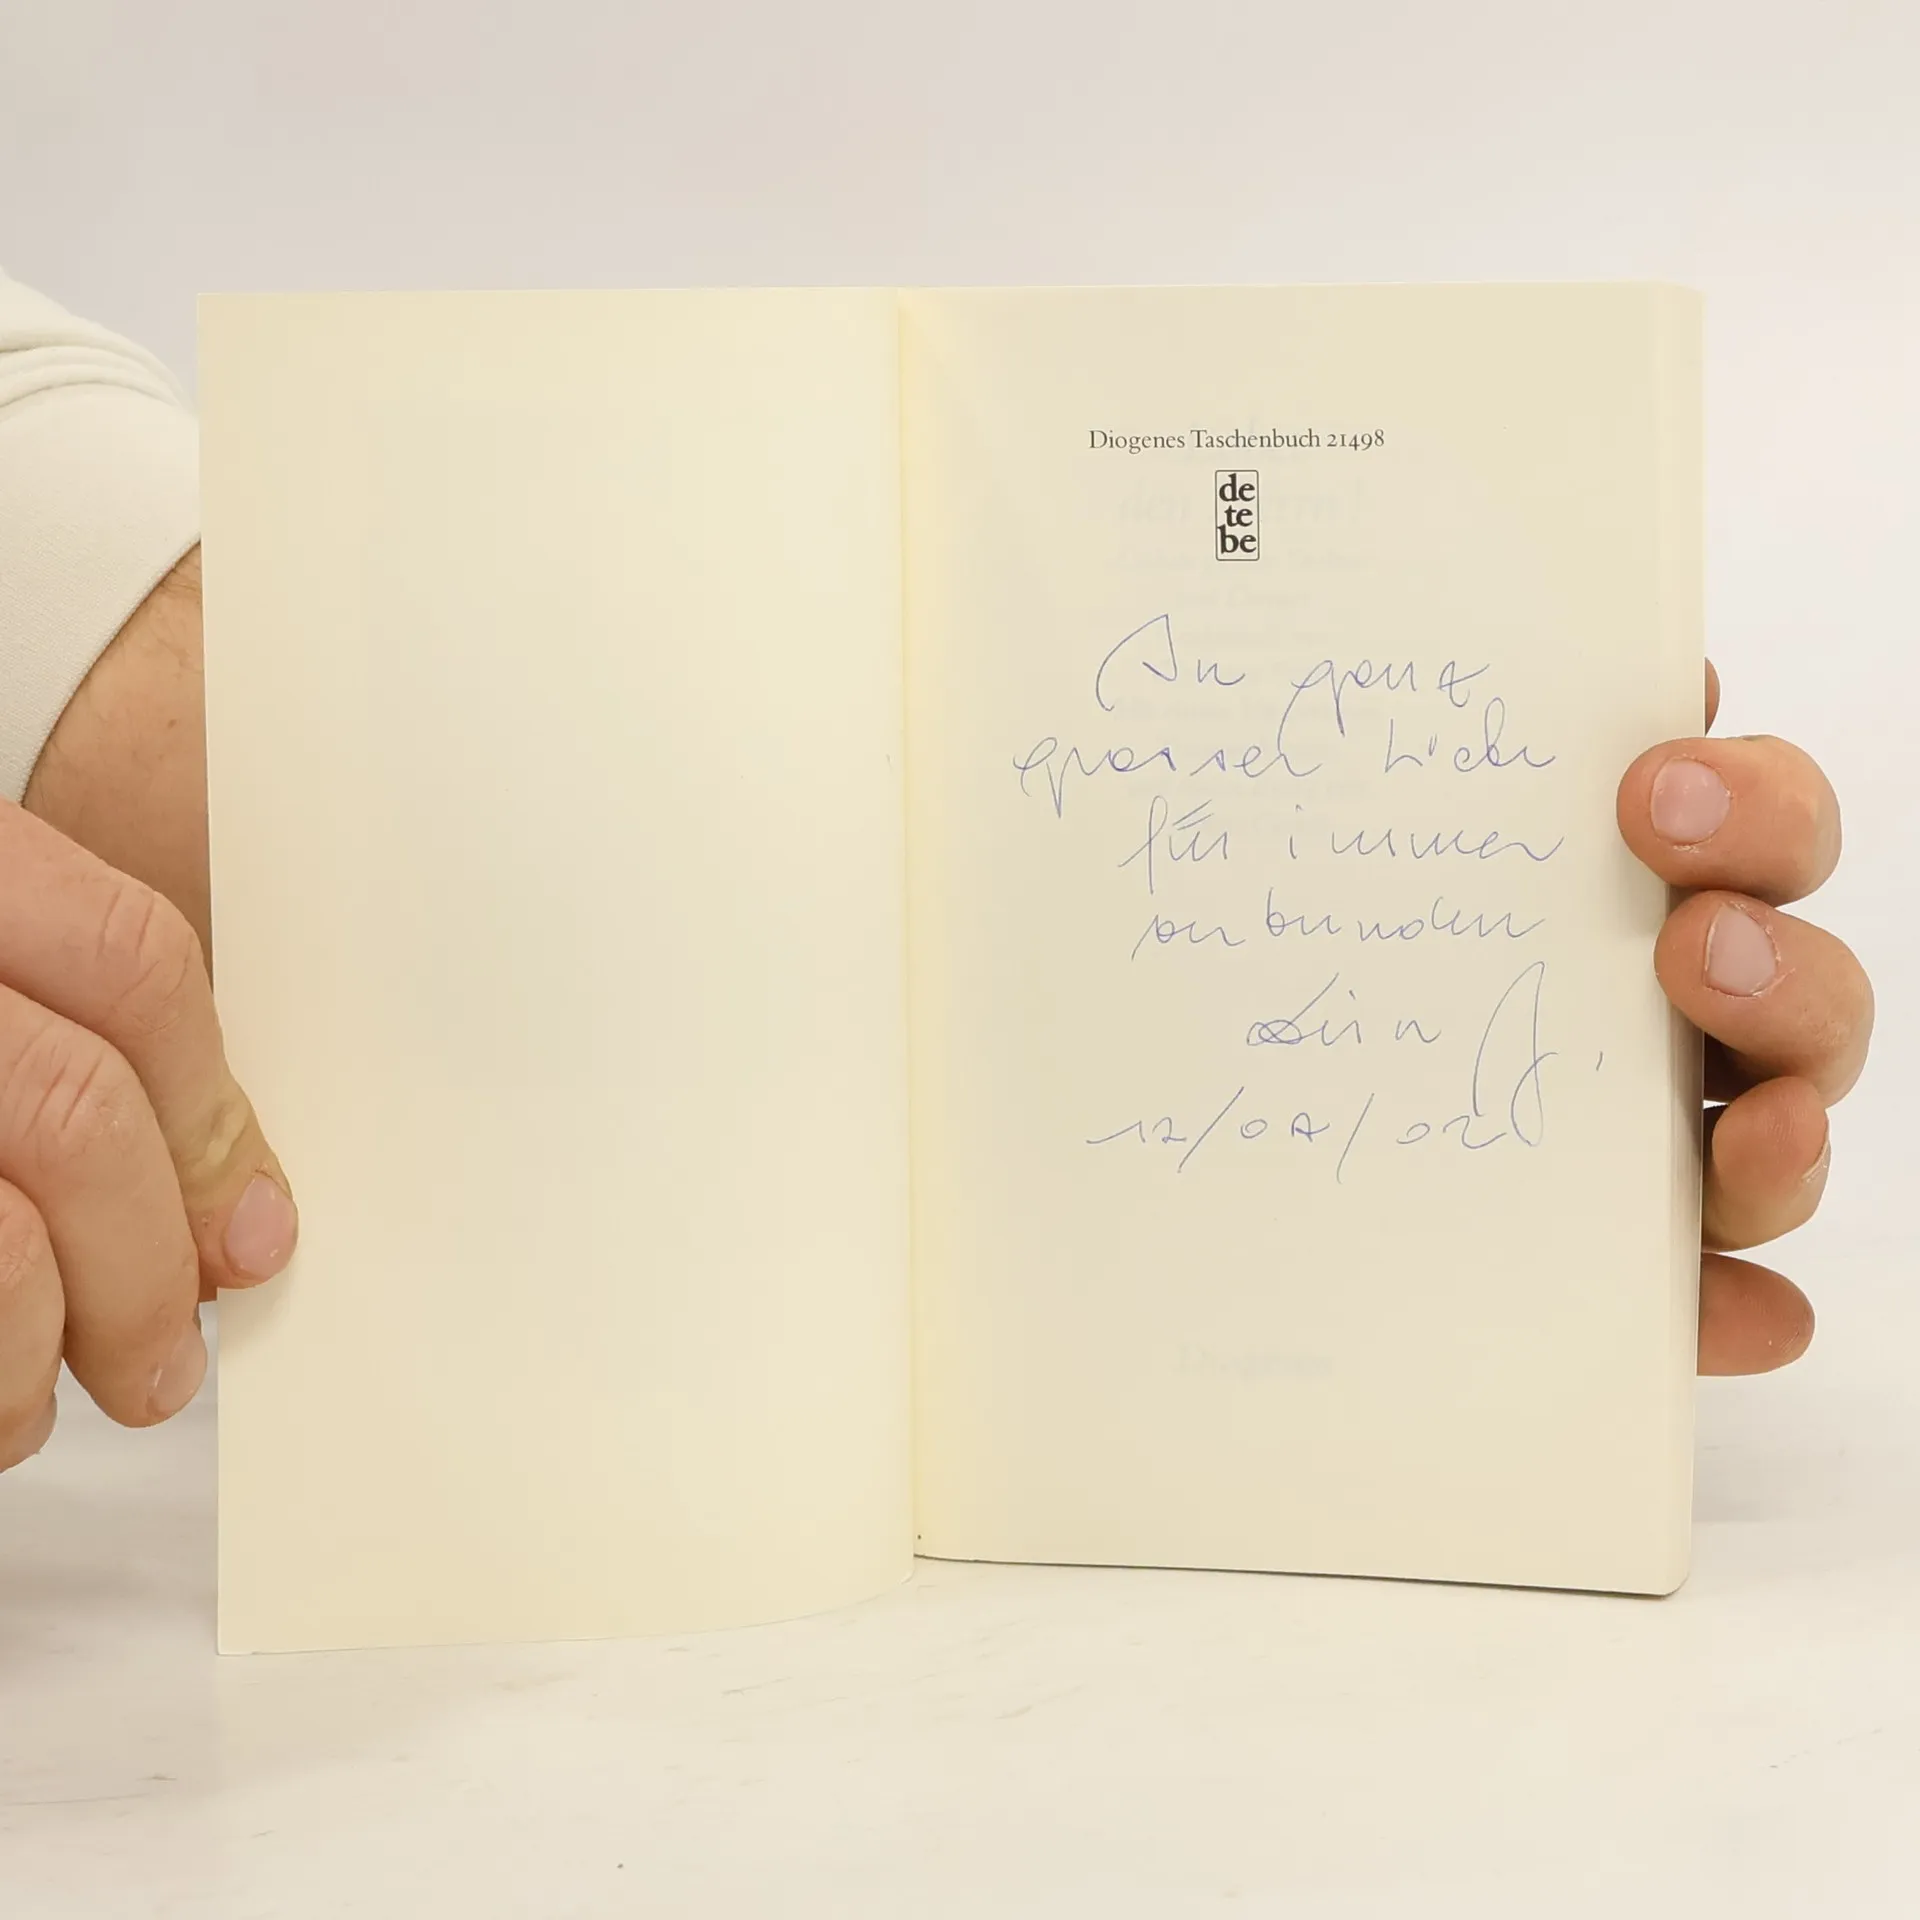 Diogenes Taschenbuch 21498
de
te
be
In ganz
grosser Liebe
für immer
verbunden
Dein J.
12/07/02